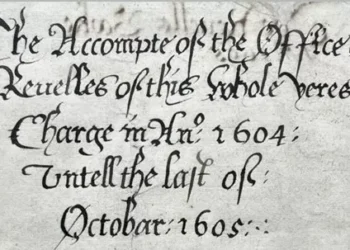 The Accompte of the Office
Reuelles of this whole yeres
Charge in Ano: 1604:
Vntell the last of:
Octobar: 1605: